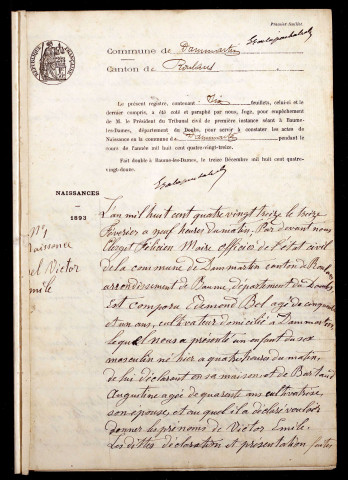 Premier feuillet
Commune de Dammartin
Canton de Roulans
RÉPUBLIQUE FRANÇAISE
Le présent registre, contenant Six feuillets, celui-ci et le
dernier compris, a été coté et paraphé par nous, Juge, pour empêchement
de M. le Président du Tribunal civil de première instance séant à Baume-
les-Dames, département du Doubs, pour servir à constater les actes de
Naissance en la commune de Dammartin pendant le
cours de l'année mil huit cent quatre-vingt-treize.
Fait double à Baume-les-Dames, le treize Décembre mil huit cent
quatre-vingt-douze.
NAISSANCES
1893
L'an mil huit cent quatre vingt treize le treize
Février à neuf heures du matin, Par devant nous
Clerget Félicien Maire officier de l'état civil
de la commune de Dammartin canton de Roulans
arrondissement de Baume département du Doubs
Est comparu Edmond Bel agé de cinquante
et un ans, cultivateur domicilié à Dammartin
lequel nous a présenté un enfant du sexe
masculin né hier à quatre heures du matin,
de lui déclarant en sa maison et de
Augustine agée de quarante ans cultivatrice,
son épouse, et auquel il a déclaré vouloir
donner les prénoms de Victor Emile.
Les dittes déclaration et présentation faites
Nº 1
naissance
el Victor
mile